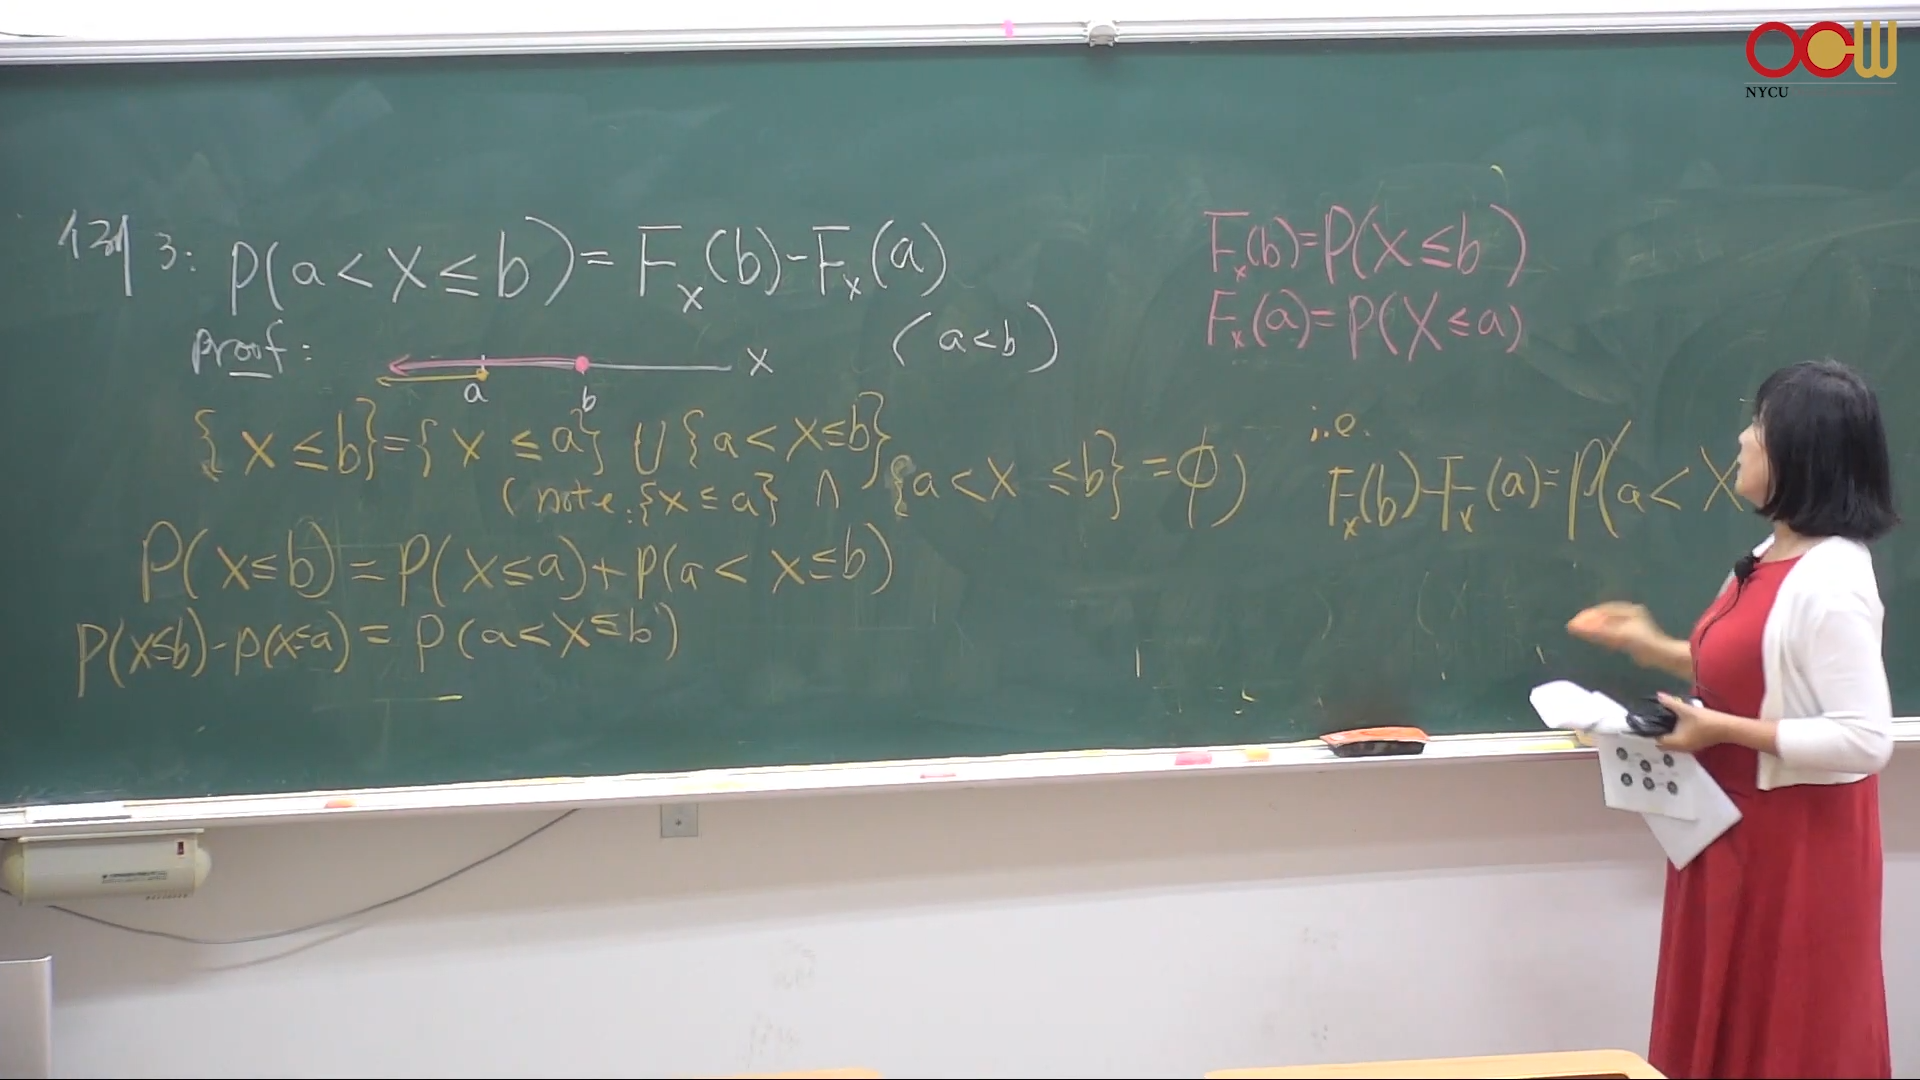 例3: P(a < X ≤ b) = F_X(b) - F_X(a)
(a < b)
proof:
a b X
{X ≤ b} = {X ≤ a} ∪ {a < X ≤ b}
(note: {X ≤ a} ∩ {a < X ≤ b} = ϕ)
P(X ≤ b) = P(X ≤ a) + P(a < X ≤ b)
P(X ≤ b) - P(X ≤ a) = P(a < X ≤ b)
F_X(b) = P(X ≤ b)
F_X(a) = P(X ≤ a)
i.e.
F_X(b) - F_X(a) = P(a < X
OCW
NYCU